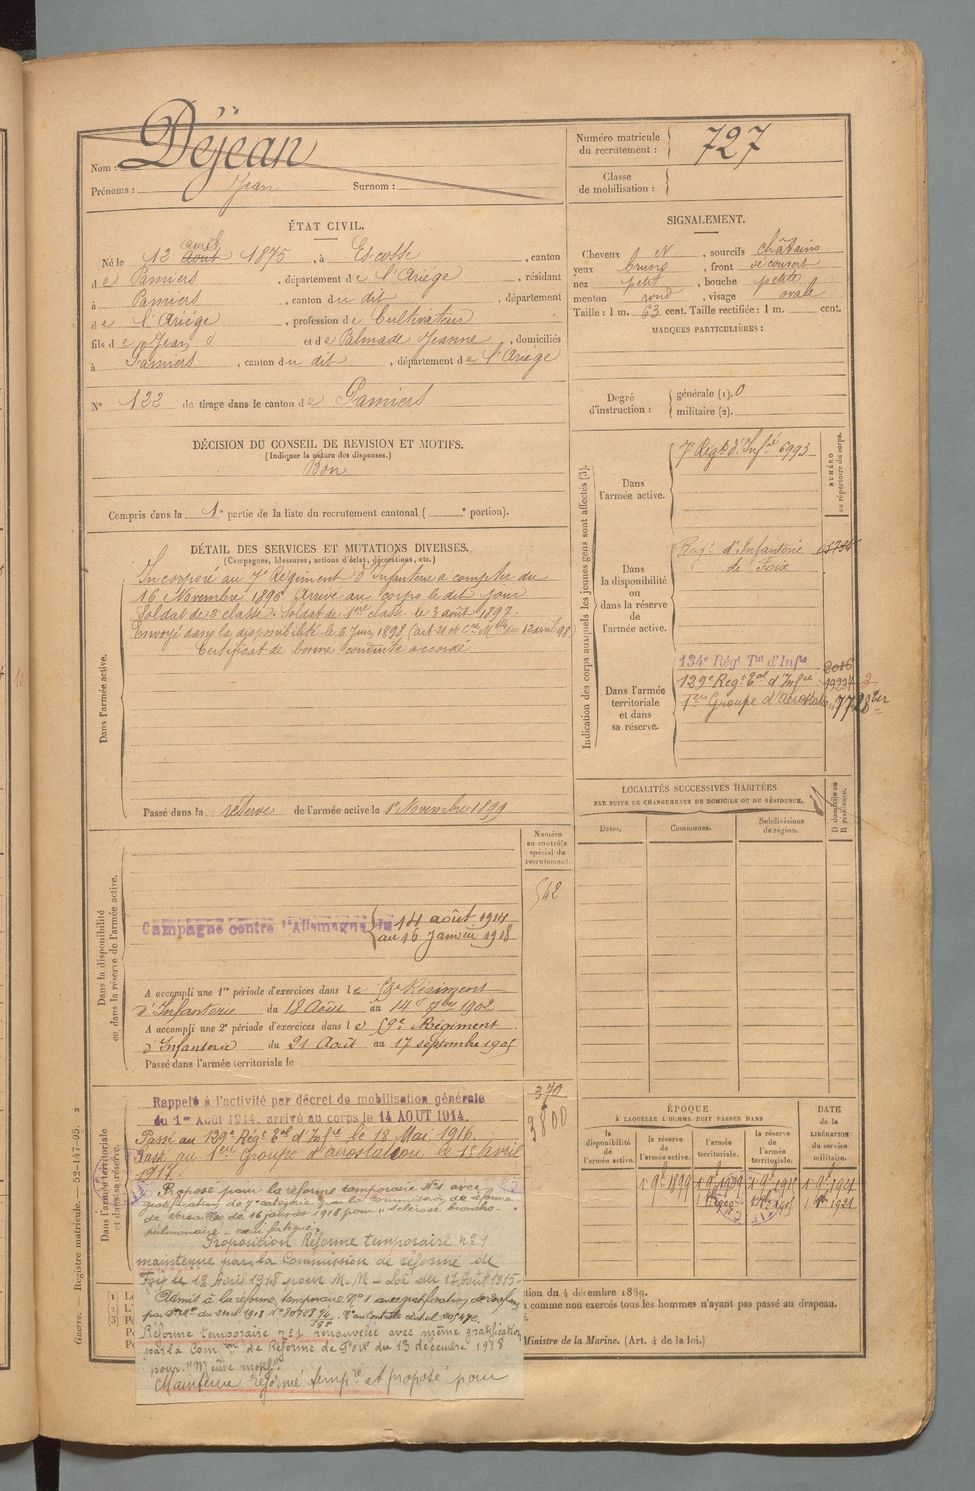 Nom : Déjean
Prénoms : Jean Surnom :
Numéro matricule du recrutement : 727
Classe de mobilisation :
ÉTAT CIVIL.
Né le 12 avril Août 1875, à Escosse, canton
de Pamiers, département de l'Ariège, résidant
à Pamiers, canton du dit, département
de l'Ariège, profession de Cultivateur
fils de Jean et de Palmade Jeanne, domiciliés
à Pamiers, canton du dit, département de l'Ariège
N° 122 de tirage dans le canton de Pamiers
DÉCISION DU CONSEIL DE REVISION ET MOTIFS.
(Indiquer la nature des dispenses.)
Bon
Compris dans la 1e partie de la liste du recrutement cantonal ( e portion).
SIGNALEMENT.
Cheveux N, sourcils châtains
yeux bruns, front découvert
nez petit, bouche petite
menton rond, visage ovale
Taille : 1 m. 63 cent. Taille rectifiée : 1 m. cent.
MARQUES PARTICULIÈRES :
Degré d'instruction : générale (1). 0
militaire (2).
DÉTAIL DES SERVICES ET MUTATIONS DIVERSES.
(Campagnes, blessures, actions d'éclat, décorations, etc.)
Dans l'armée active.
Incorporé au 7e Régiment d'Infanterie a compter du
16 Novembre 1896 Arrivé au corps le dit jour
Soldat de 2e classe. Soldat de 1ere classe le 3 août 1897.
Envoyé dans la disponibilité le 6 Juin 1898 (art. 21 et Cre Mlle du 12 avril 98)
Certificat de bonne conduite accordé
Passé dans la réserve de l'armée active le 1er Novembre 1899
Indication des corps auxquels les jeunes gens sont affectés (3).
NUMÉRO au répertoire du corps.
Dans l'armée active.
7e Régt d'Infrie 6993
Dans la disponibilité ou dans la réserve de l'armée active.
Régt d'Infanterie
de Foix
Dans l'armée territoriale et dans sa réserve.
134e Régt Tal d'Infie
129e Régt Tal d'Infie 19234
1er Groupe d'Aérostation 7728ter
LOCALITÉS SUCCESSIVES HABITÉES
PAR SUITE DE CHANGEMENTS DE DOMICILE OU DE RÉSIDENCE.
Dates. Communes. Subdivisions de région. D domicile ou R résidence.
Dans la disponibilité ou dans la réserve de l'armée active.
Numéro au contrôle spécial du recrutement.
542
Campagne contre l'Allemagne du 14 août 1914
au 16 Janvier 1918
A accompli une 1re période d'exercices dans le 59e Régiment
d'Infanterie du 18 Août au 14 7bre 1902
A accompli une 2e période d'exercices dans le 59e Régiment
d'Infanterie du 21 Août au 17 septembre 1905
Passé dans l'armée territoriale le
Dans l'armée territoriale et dans sa réserve.
370
3800
Rappelé à l'activité par décret de mobilisation générale
du 1er Août 1914. arrivé au corps le 14 AOUT 1914.
Passé au 129e Régt Tal d'Infie le 18 Mai 1916.
Passé au 1er Groupe d'aérostation le 15 Avril
1917.
Proposé pour la réforme temporaire N°1 avec
gratification de 7e catégorie par la Commission de réforme
de Versailles du 16 janvier 1918 pour "sclérose broncho-
pulmonaire - cœur fatigué.
Proposition Réforme temporaire n°1
maintenue par la Commission de réforme de
Foix le 12 Avril 1918 pour M.M - Loi du 17 Août 1915-
Admis à la réforme temporaire N°1 avec gratification de
Réforme temporaire n°1 renouvelée avec même gratification
par la Comon de Réforme de Foix du 13 décembre 1918
pour "Même motif"
Maintenu réformé tempre et proposé pour
ÉPOQUE
À LAQUELLE L'HOMME DOIT PASSER DANS
la disponibilité de l'armée active. la réserve de l'armée active. l'armée territoriale. la réserve de l'armée territoriale.
DATE de la LIBÉRATION du service militaire.
1 9bre 1899 1 9bre 1909 1 9bre 1915 1 9bre 1921
ction du 4 décembre 1889.
a comme non exercés tous les hommes n'ayant pas passé au drapeau.
Ministre de la Marine. (Art. 4 de la loi.)
Guerre. — Registre matricule. — 52-147-95. 2